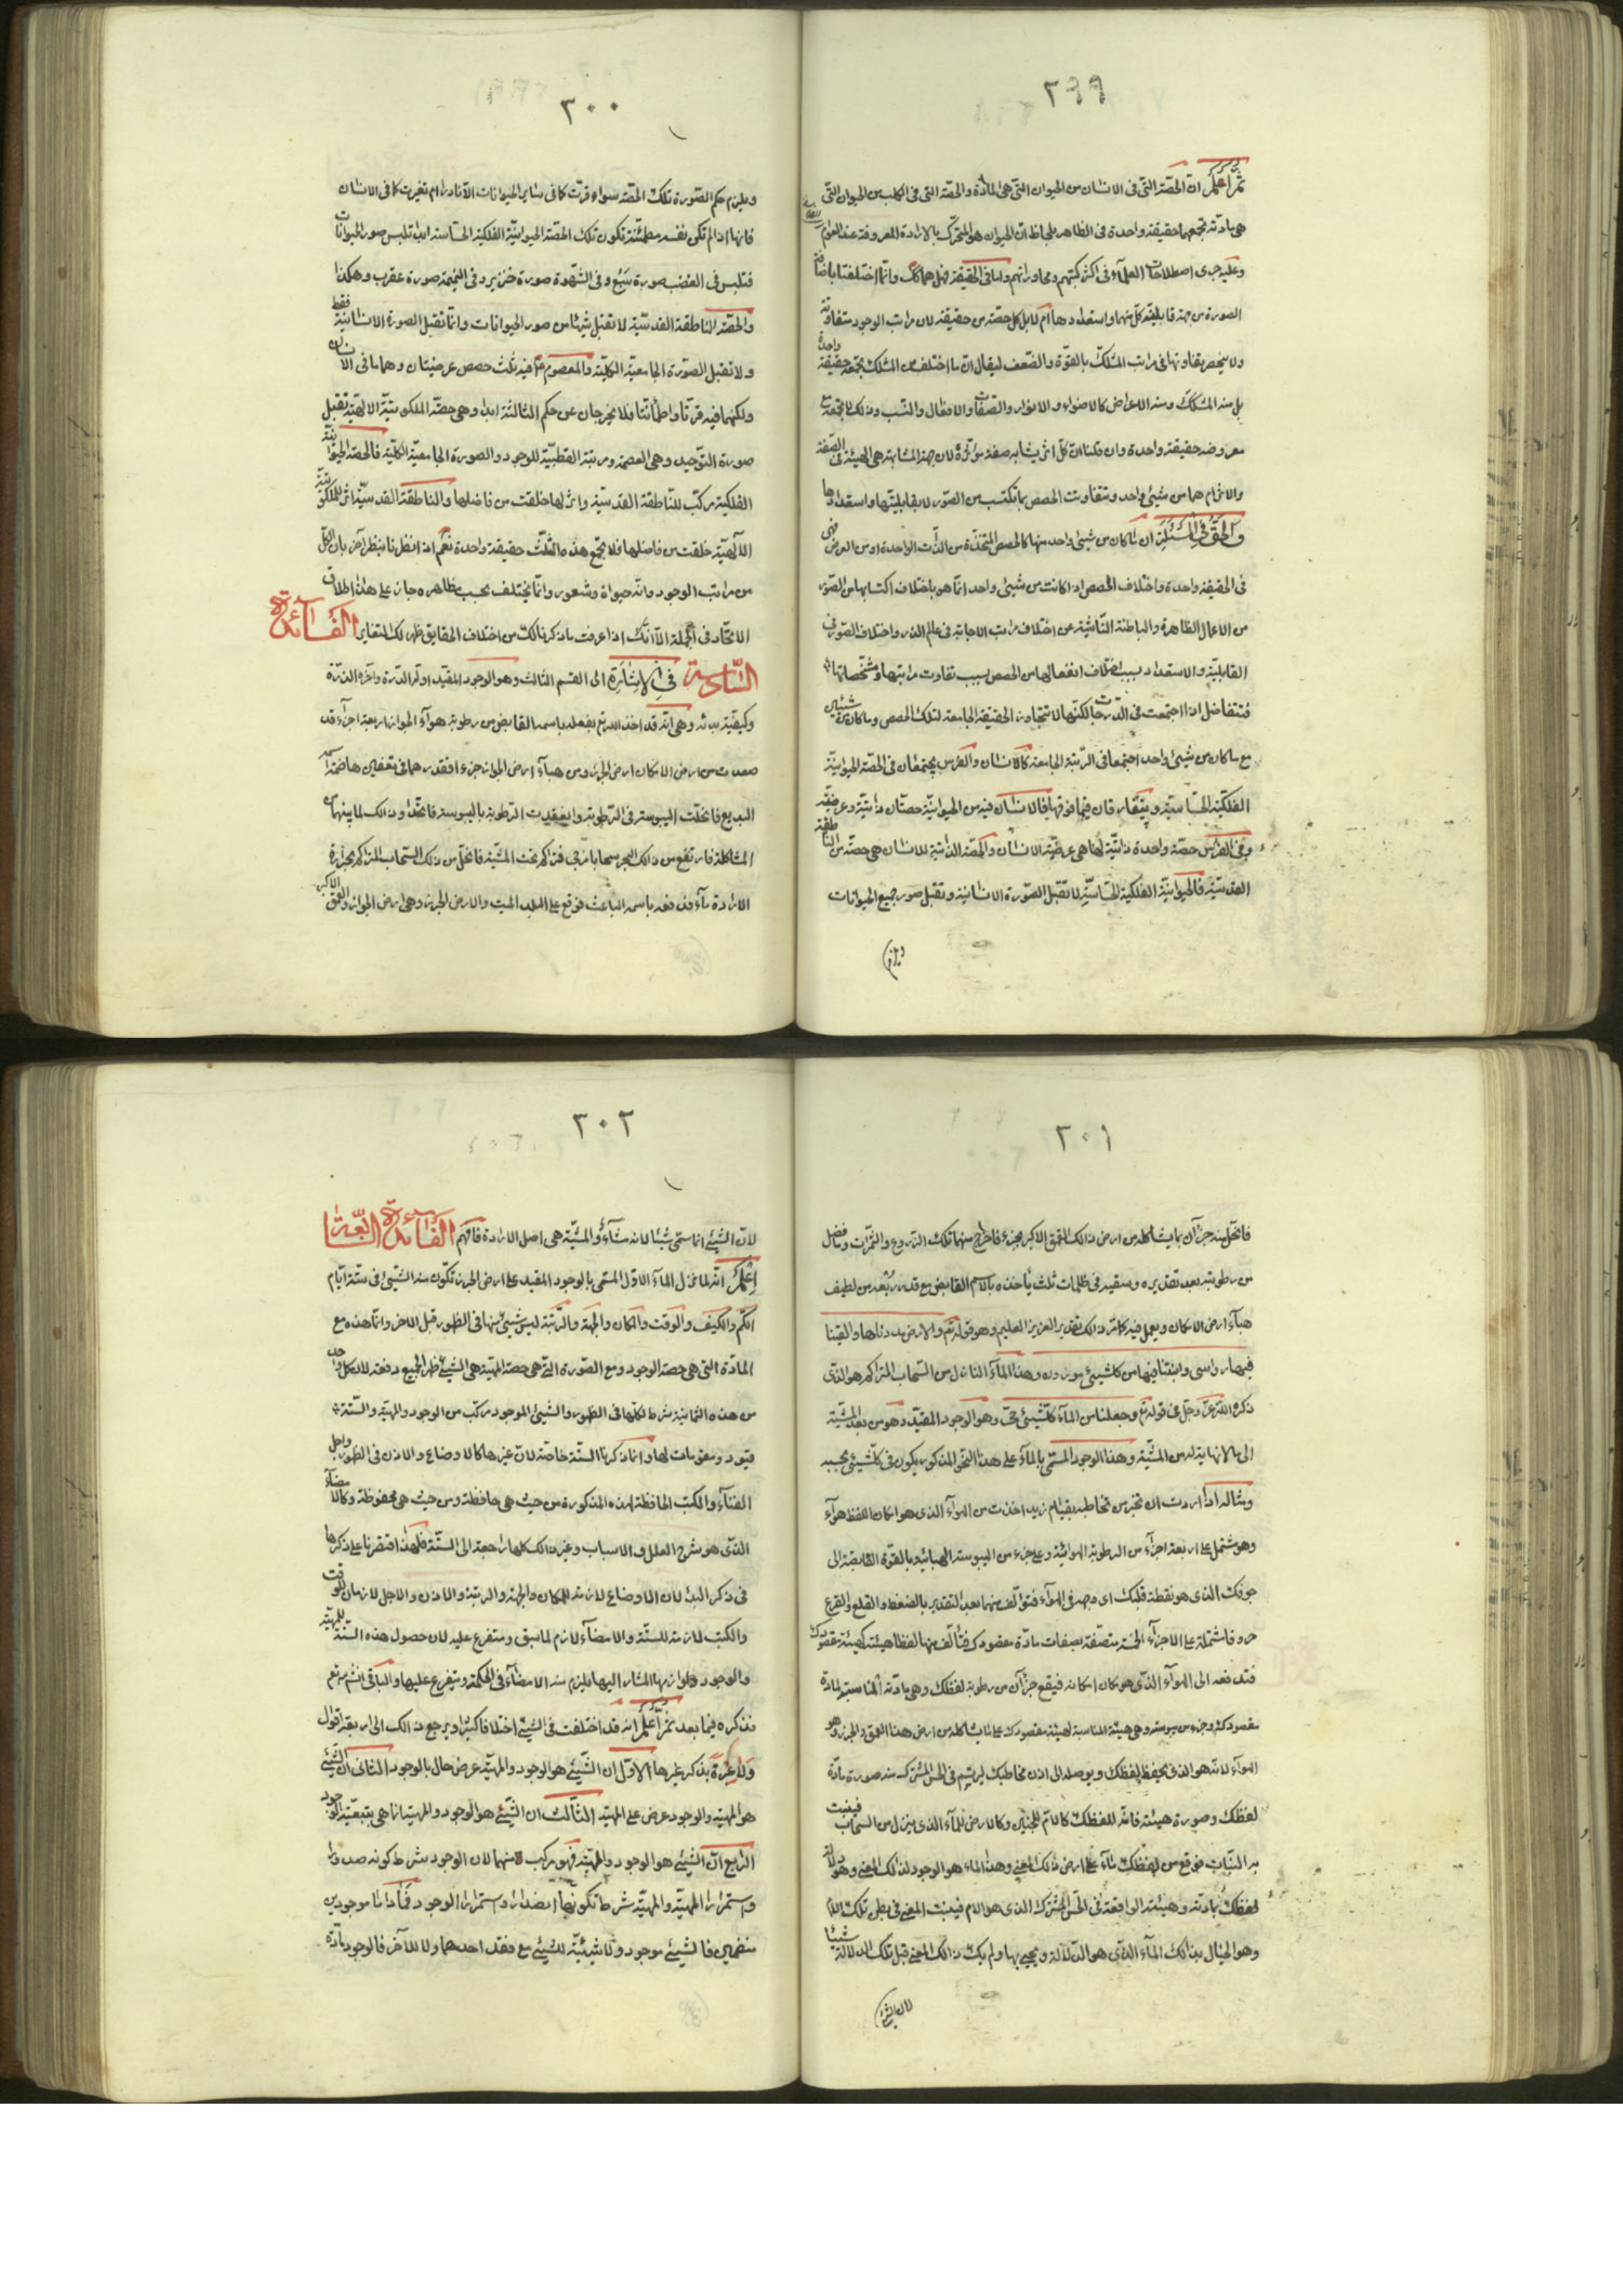 ٢٩٩
ثم اعلم ان الحصّة التى فى الانسان من الحيوان التى هى المادّة والحصّة التى فى الكلب من الحيوان التى
هى مادته تجمعهما حقيقة واحدة فى الظاهر بلحاظ انّ الحيوان هو المتحرّك بالارادة المعروفة عند العوام
وعليه جرى اصطلاحات العلمآء فى اكثر كتبهم ومحاوراتهم واما فى الحقيقة فهل هما كك وانّما اختلفتا باختلاف
الصورة من جهة قابليّة كل منهما واستعدادها ام لا بل كل حصّة من حقيقة لان مراتب الوجود متفاوتة
ولا ينحصر تفاوتها فى مراتب المشكّك بالقوّة والضّعف ليقال انّ ما اختلف من المشكك تجمعه حقيقة واحدة
بل منه المشكك ومنه الاعراض كالاضواء والانوار والصّفات والافعال والنّسب وذلك لا تجمعه مع
معروضه حقيقة واحدة وان قلنا انّ كلّ اثر يشابه صفة مؤثّره لان جهة المشابهة هى الهيئة فى الصّفة
والا لزم انهما من شيئ واحد وتتفاوت الحصص بما تكتسب من الصّور لا بقابليتها واستعدادها
والحقّ فى المسئلة ان ما كان من شيئ واحد منها كالحصص المتّخذة من الذّات الواحدة او من العرض فهى
فى الحقيقة واحدة واختلاف الحصص اذا كانت من شيئ واحد انّما هو باختلاف اكتسابها من الصّور
من الاعمال الظاهرة والباطنة النّاشئة عن اختلاف مراتب الاجابة فى عالم الذر واختلاف الصّور فى
القابليّة والاستعداد بسبب اختلاف انفعالها من الحصص بسبب تفاوت مراتبها ومشخّصاتها
فتتفاضل اذا اجتمعت فى الذّات لكنّها لا تتجاوز الحقيقة الجامعة لتلك الحصص وما كان من شيئين
مع ما كان من شيئ واحد اجتمعا فى الرّتبة الجامعة كالانسان والفرس يجتمعان فى الحصّة الحيوانيّة
الفلكيّة الحسّاسيّة ويتفارقان فيما فوقها فالانسان فيه من الحيوانيّة حصّتان ذاتيّة وعرضيّة
وفى الفرس حصّة واحدة ذاتيّة لها هى عرضيّة الانسان والحصّة الذاتية للانسان هى حصّة من الناطقة
القدسيّة فالحيوانيّة الفلكية الحسّاسيّة لا تقبل الصّورة الانسانية وتقبل صور جميع الحيوانات
٣٠٠
ويلزم حكم الصّورة تلك الحصّة سواء قرّت كما فى سائر الحيوانات الّا نادرا ام تغيرت كما فى الانسان
فانها اذا لم تكن نفسه مطمئنّة تكون تلك الحصّة الحيوانيّة الفلكية الحسّاسة ابدا تلبس صور الحيوانات
فتلبس فى الغضب صورة سَبُع وفى الشّهوة صورة خنزير وفى النميمة صورة عقرب وهكذا
والحصّة الناطقة القدسيّة لا تقبل شيئا من صور الحيوانات وانّما تقبل الصورة الانسانيّة فقط
ولا تقبل الصّورة الجامعيّة الكليّة والمعصوم فيه ثلث حصص عرضيتان وهما ما فى الانسان
ولكنهما فيه قرّتا واطمأنّتا فلا يخرجان عن حكم الثالثة ابدا وهى حصّة الملكوتيّة الالهيّة تقبل
صورة التّوحيد وهى العصمة ومرتبة القطبيّة للوجود والصورة الجامعيّة الكليّة فالحصّة الحيوانيّة
الفلكية مركب للنّاطقة القدسيّة واثر لها خلقت من فاضلها والناطقة القدسيّة اثر للملكوتيّة
الالٓهيّة خلقت من فاضلها فلا تجمع هذه الثلث حقيقة واحدة نعم اذا نظرنا بنظر آخر بان الكلّ
من مراتب الوجود وانّه حيواة وشعور وانّما يختلف بحسب مظاهره جاز على هذا اطلاق
الاتّحاد فى الجملة الّا انّك اذا عرفت ما ذكرنا لك من اختلاف الحقايق ظهر لك التغاير الفَائدة
السّادسة فى الاشَارَة الى القسم الثالث وهو الوجود المقيّد اوله الدّرة وآخره الذرّة
وكيفيّة بدئه وهى انّه قد اخذ الله تع بفعله باسمه القابض من رطوبة هوآء الجواز اربعة اجزآء قد
صعدت من ارض الامكان ارض الجرز ومن هبآء ارض الجواز جزء افقدرهما فى تعفين هاضمة اسمه
البديع فانحلّت اليبوسة فى الرّطوبة وانعقدت الرّطوبة باليبوسة فاتحدا وذلك لما بينهما من
المشاكلة فارتفع من ذلك البحر سحابا مزجى فتراكم تحت المشيّة فانحلّ من ذلك السّحاب المتراكم بحرارة
الارادة مآء فدفعه باسمه الباعث فوقع على البلد الميت والارض الجرز وهى ارض الجواز والعمق الاكبر
٣٠١
فانحلّ منه جزآن بما يشاكله من ارض ذلك العمق الاكبر بجزء فاخرج منهما تلك الزّروع والثمرات وما فضل
من رطوبته بعد تقديره وسقيه فى ظلمات ثلث يأخذه بالاسم القابض مع قدر ربعه من لطيف
هبآء ارض الامكان ويعمل فيه كما مرّ ذلك تقدير العزيز العليم وهو قوله تع والارض مددناها والقينا
فيها رواسى وانبتنا فيها من كل شيئ موزون وهذا المآء النازل من السّحاب المتراكم هو الذى
ذكره الله عزّ وجلّ فى قوله تع وجعلنا من المآء كلّ شيئ حىّ وهو الوجود المقيّد وهو من بعد المشيّة
الى ما لا نهاية له من المشيّة وهذا الوجود المسمّى بالمآء على هذا النّحو المذكور يكون فى كلّ شيئ بحسبه
ومثاله اذا اردت ان تخبر من تخاطبه بقيام زيد اخذت من الهوآء الذى هو امكان اللفظ هوآء
وهو مشتمل على اربعة اجزآء من الرطوبة الهوائيّة وعلى جزء من اليبوسة الهبائيّة وبالقوّة القابضة الى
جوفك الذى هو نقطة قلبك اى وجهه فى الهوآء فتؤلّف منهما بعد التقدير بالضغط والقلع والقرع
حروفا مشتملة على الاجزآء الخمسة متصّفة بصفات مادّة مقصودك فتألّف منها لفظا هيئته كهيئة مقصودك
فتدفعه الى الهوآء الذى هو مكان امكانه فيقع جزآن من رطوبة لفظك وهى مادته المناسبة لمادة
مقصودك وجزء من يبوسته وهى هيئته المناسبة لهيئة مقصودك على ما يشاكله من ارض هذا العمق والجرز وهو
الهوآء لانّه هو الذى يحفظ لفظك ويوصله الى اذن مخاطبك ليرتسم فى الحس المشترك منه صورة مادّة
لفظك وصورة هيئته فانّه للفظك كالامّ للجنين وكالارض للمآء الذى ينزل من السّحاب فينبت
به النّبات فوقع من لفظك مآء على ارض ذلك المعنى وهذا الماء هو الوجود لذلك المعنى وهو دلالة
لفظك بمادته وهيئته الواقعة فى الحسّ المشترك الذى هو الام فينبت المعنى فى بطن تلك الام
وهو الخيال بذلك المآء الذى هو الدّلالة ويحيى بها ولم يك ذلك المعنى قبل تلك الدلالة شيئا
٣٠٢
لانّ الشيئ انما سمّى شيئا لانه مشآء والمشيّة هى اصل الارادة فافهم الفَآئدة السّابعة
اعلم انّه لما نزل المآء الاوّل المسمّى بالوجود المقيد على ارض الجرز تكوّن منه الشّيئ فى ستة ايّام
الكمّ والكيف والوقت والمكان والجهة والرّتبة ليس شيئ منها فى الظهور قبل الاخر وانّما هذه مع
المادّة التى هى حصة الوجود ومع الصّورة التى هى حصة المهيّة هى الشيئ ظهر الجميع دفعة لان كل واحد
من هذه الثمانية شرط لكلها فى الظهور والشيئ الموجود مركّب من الوجود والمهيّة والستّة
قيود ومقومات لها وانما ذكرنا الستّة خاصّة لانّ غيرها كالاوضاع والاذن فى الظهور واجل
الفنآء والكتب الحافظة لهذه المذكورة من حيث هى حافظة ومن حيث هى محفوظة وكالامضآء
الذى هو شرح العلل والاسباب وغير ذلك كلها راجعة الى الستّة فلهذا اقتصرنا على ذكرها
فى ذكر البدء لان الاوضاع لازمة للمكان والجهة والرتبة والاذن والاجل لازمان للوقت
والكتب لازمة للستّة والامضآء لازم لما سبق ومتفرع عليه لان حصول هذه الستّة للمهيّة
والوجود ولوازمها المشار اليها يلزم منه الامضآء فى الحكمة ويتفرع عليها والباقى انشاء الله تع
نذكره فيما بعد ثمّ اعلم انه قد اختلفت فى الشيئ اختلافا كثيرا ويرجع ذلك الى اربعة اقوال
ولا غرّة بذكر غيرها الاوّل ان الشّيئ هو الوجود والمهيّة عرض حال بالوجود الثانى ان الشيئ
هو المهيّة والوجود عرض على المهيّة الثالث ان الشّيئ هو الوجود والمهية انما هى بتبعيّة الوجود
الرّابع انّ الشيئ هو الوجود والمهيّة فهو مركب منهما لان الوجود شرط كونه صدورا
واستمرارا المهيّة والمهيّة شرط تكوّنها انصدارا واستمرارا الوجود فما داما موجودين
منضمين فالشيئ موجود ولا شيئيّة للشيئ مع فقد احدهما ولا للآخر فالوجود مادّة